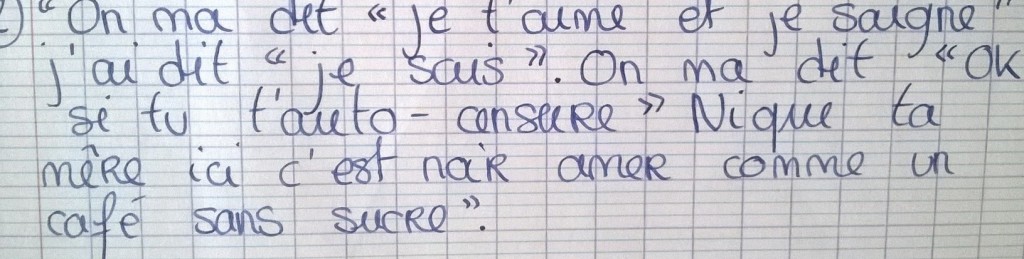 “On ma dit « je t'aime et je saigne”
j'ai dit “je sais”. On ma dit “OK
si tu t'auto-censure” Nique ta
mère ici c'est noir amer comme un
café sans sucre”.